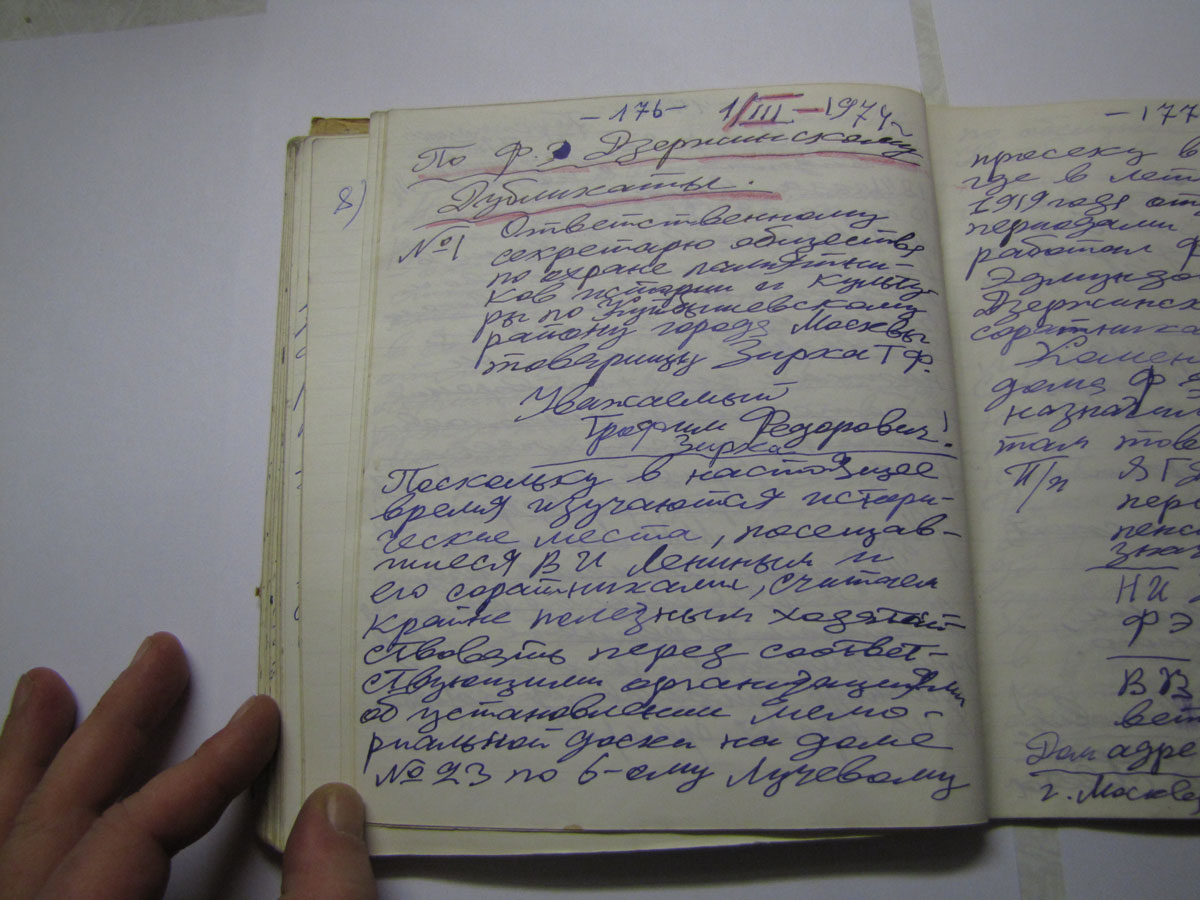 -176- 1/III.-1974г
По Ф.Э Дзержинскому
Дубликаты.
8)
№1 Ответственному
секретарю общества
по охране памятни-
ков истории и культу-
ры по Куйбышевскому
району города Москвы
товарищу Зирка Т Ф.
Уважаемый
Трофим Федорович!
Зирка
Поскольку в настоящее
время изучаются истори-
ческие места, посещав-
шиеся В И Лениным и
его соратниками, считаем
крайне полезным ходатай-
ствовать перед соответ-
ствующими организациями
об установлении мемо-
риальной доски на доме
№ 23 по 6-ому Лучевому
-177
просеку в
где в лет
1919 года от
периодами
работал Ф
Эдмундо
Дзержинск
соратника
дома Ф Э
назначит
там тов
П/п
пер
пенс
зна
НИ
ФЭ
ВВ
вет
Дом адре
г. Москва,